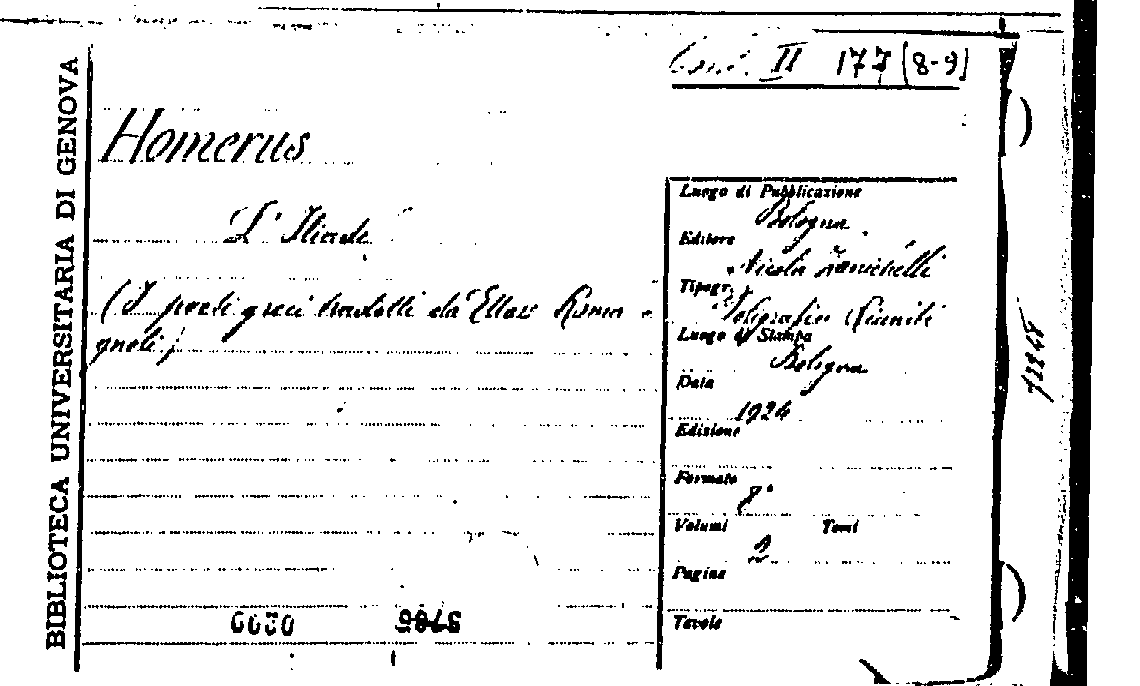 BIBLIOTECA UNIVERSITARIA DI GENOVA
II 177 (8-9)
Homerus
L'Iliade
(I poeti greci tradotti da Ettore Roma-
gnoli)
Luogo di Pubblicazione
Bologna
Editore
Nicola Zanichelli
Tipogr.
Poligrafici Riuniti
Luogo di Stampa
Bologna
Data
1924
Edizione
Formato
8°
Volumi Tomi
2
Pagine
Tavole